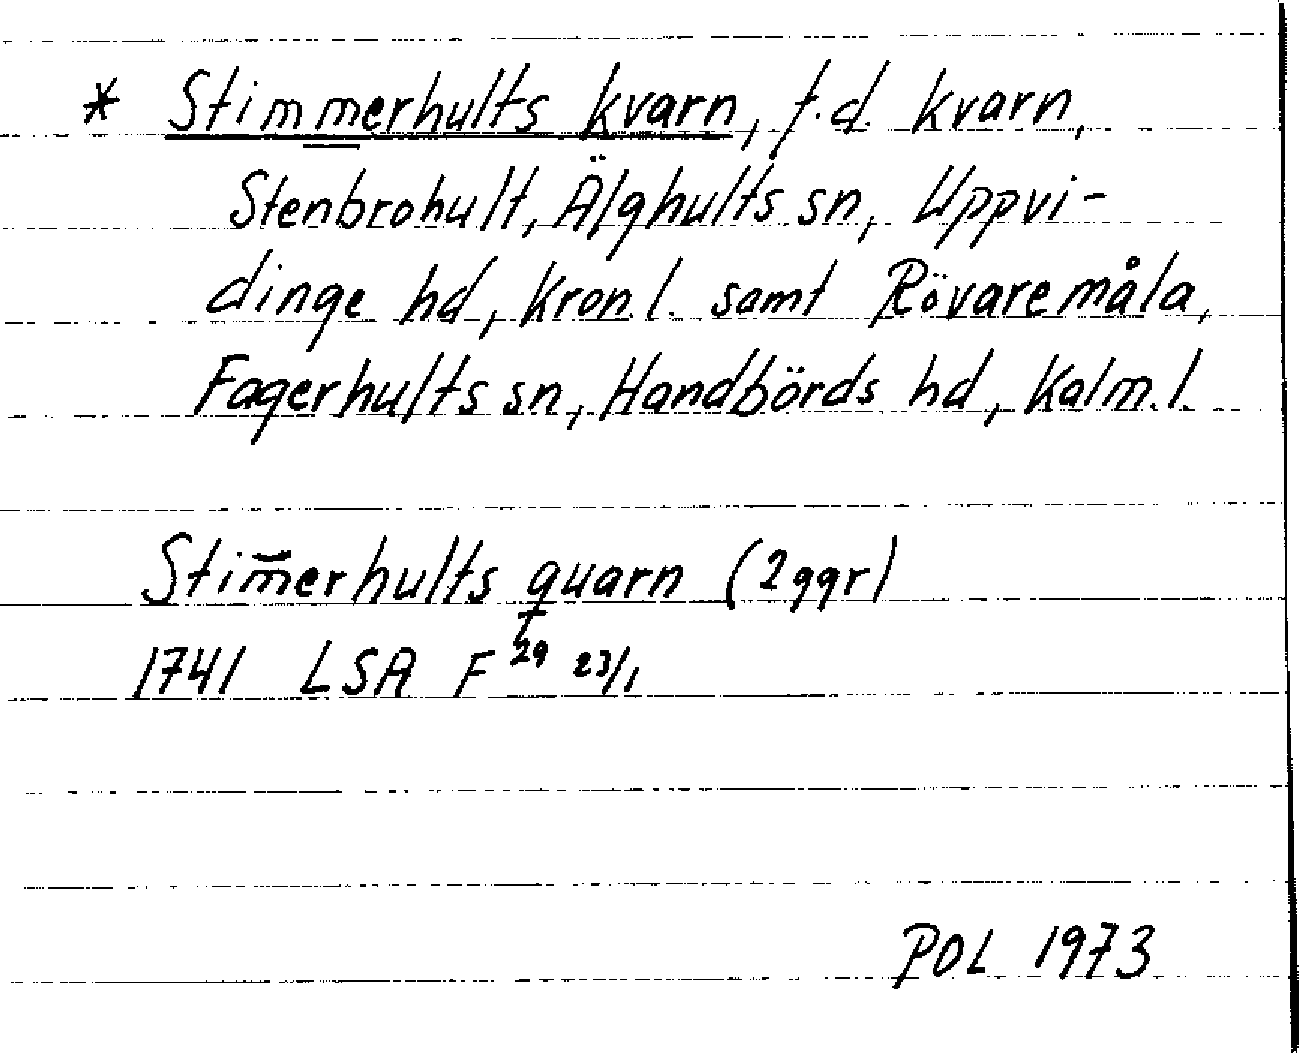 * Stimmerhults kvarn, f.d. kvarn,
Stenbrohult, Älghults sn, Uppvi-
dinge hd, Kron.l. samt Rövaremåla,
Fagerhults sn, Handbörds hd, Kalm.l.
Stim̅erhults quarn (2 ggr)
1741 LSA F 29 23/1
POL 1973